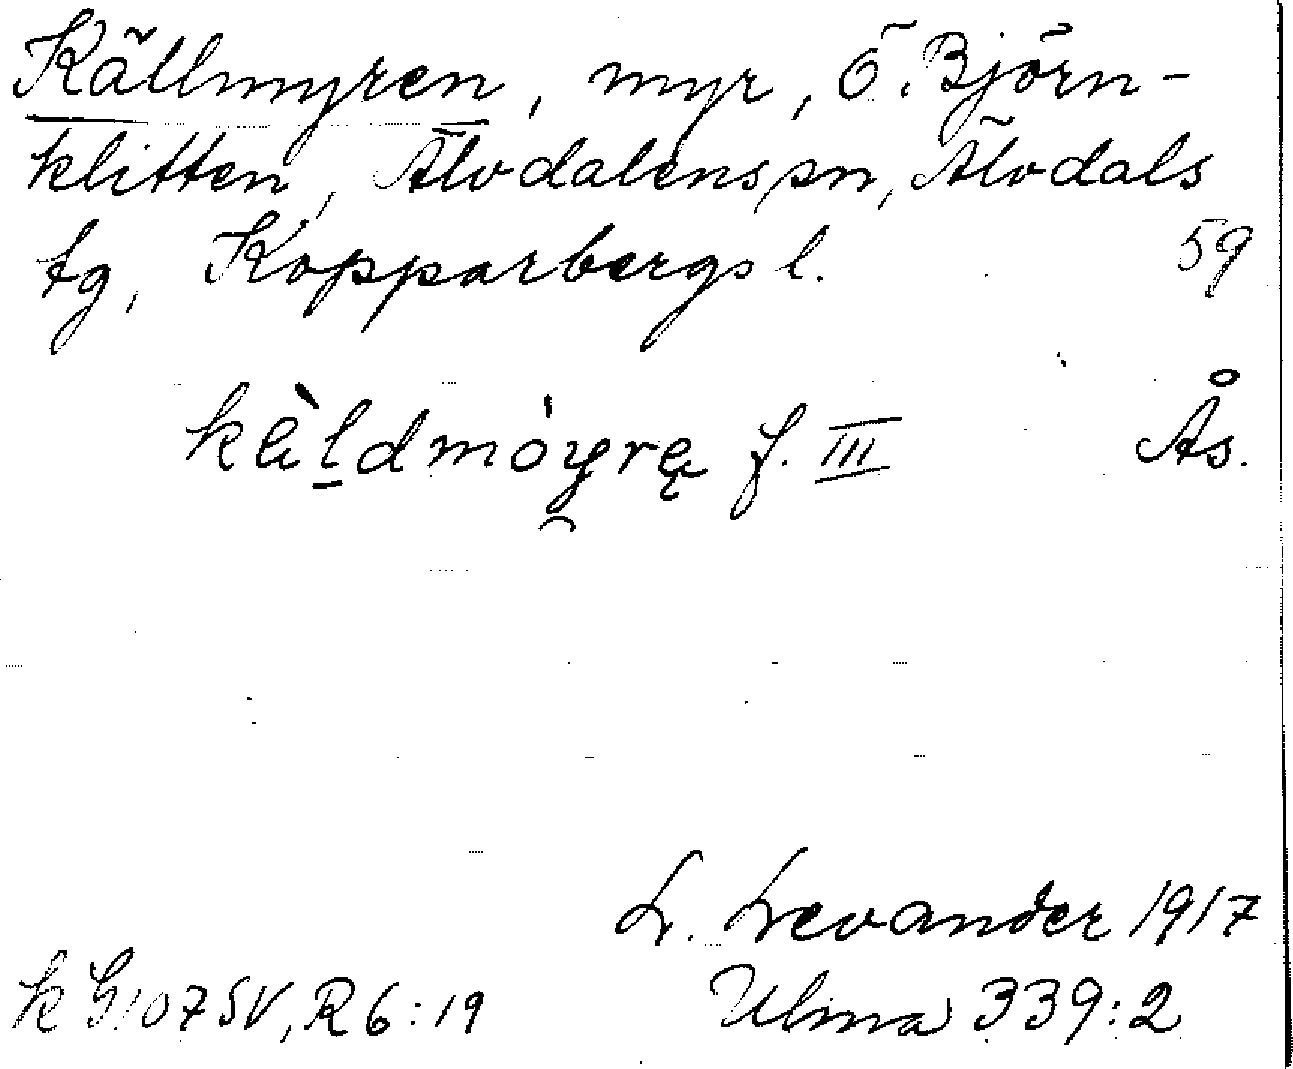 Källmyren, myr, Ö. Björn-
klitten, Älvdalens sn, Älvdals
tg, Kopparbergs l. 59
kȁl̠dmòy̯rę f. III Ås.
L. Levander 1917
k G107SV, R6:19 Ulma 339:2